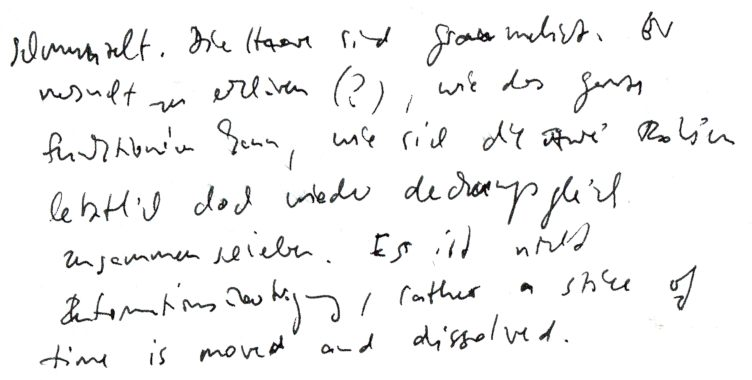 schmunzelt. Die Haare sind grau meliert. Er
versucht zu erklären (?), wie das ganze
funktionieren kann, wie sich die zwei
letztlich doch wieder deckungsgleich
zusammenschieben. Es ist nicht
, rather a slice of
time is moved and dissolved.